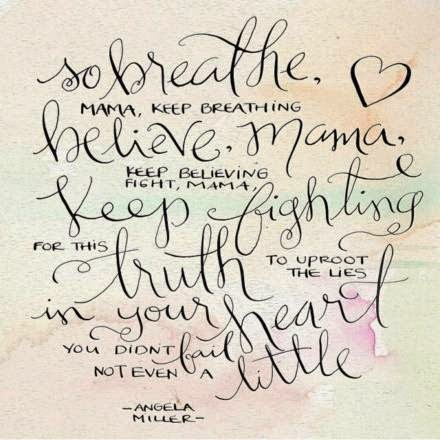 so breathe,
MAMA, KEEP BREATHING
believe, mama,
KEEP BELIEVING
FIGHT, MAMA,
keep fighting
FOR THIS
truth
TO UPROOT
THE LIES
in your heart
YOU DIDNT fail
NOT EVEN A little
-ANGELA
MILLER-